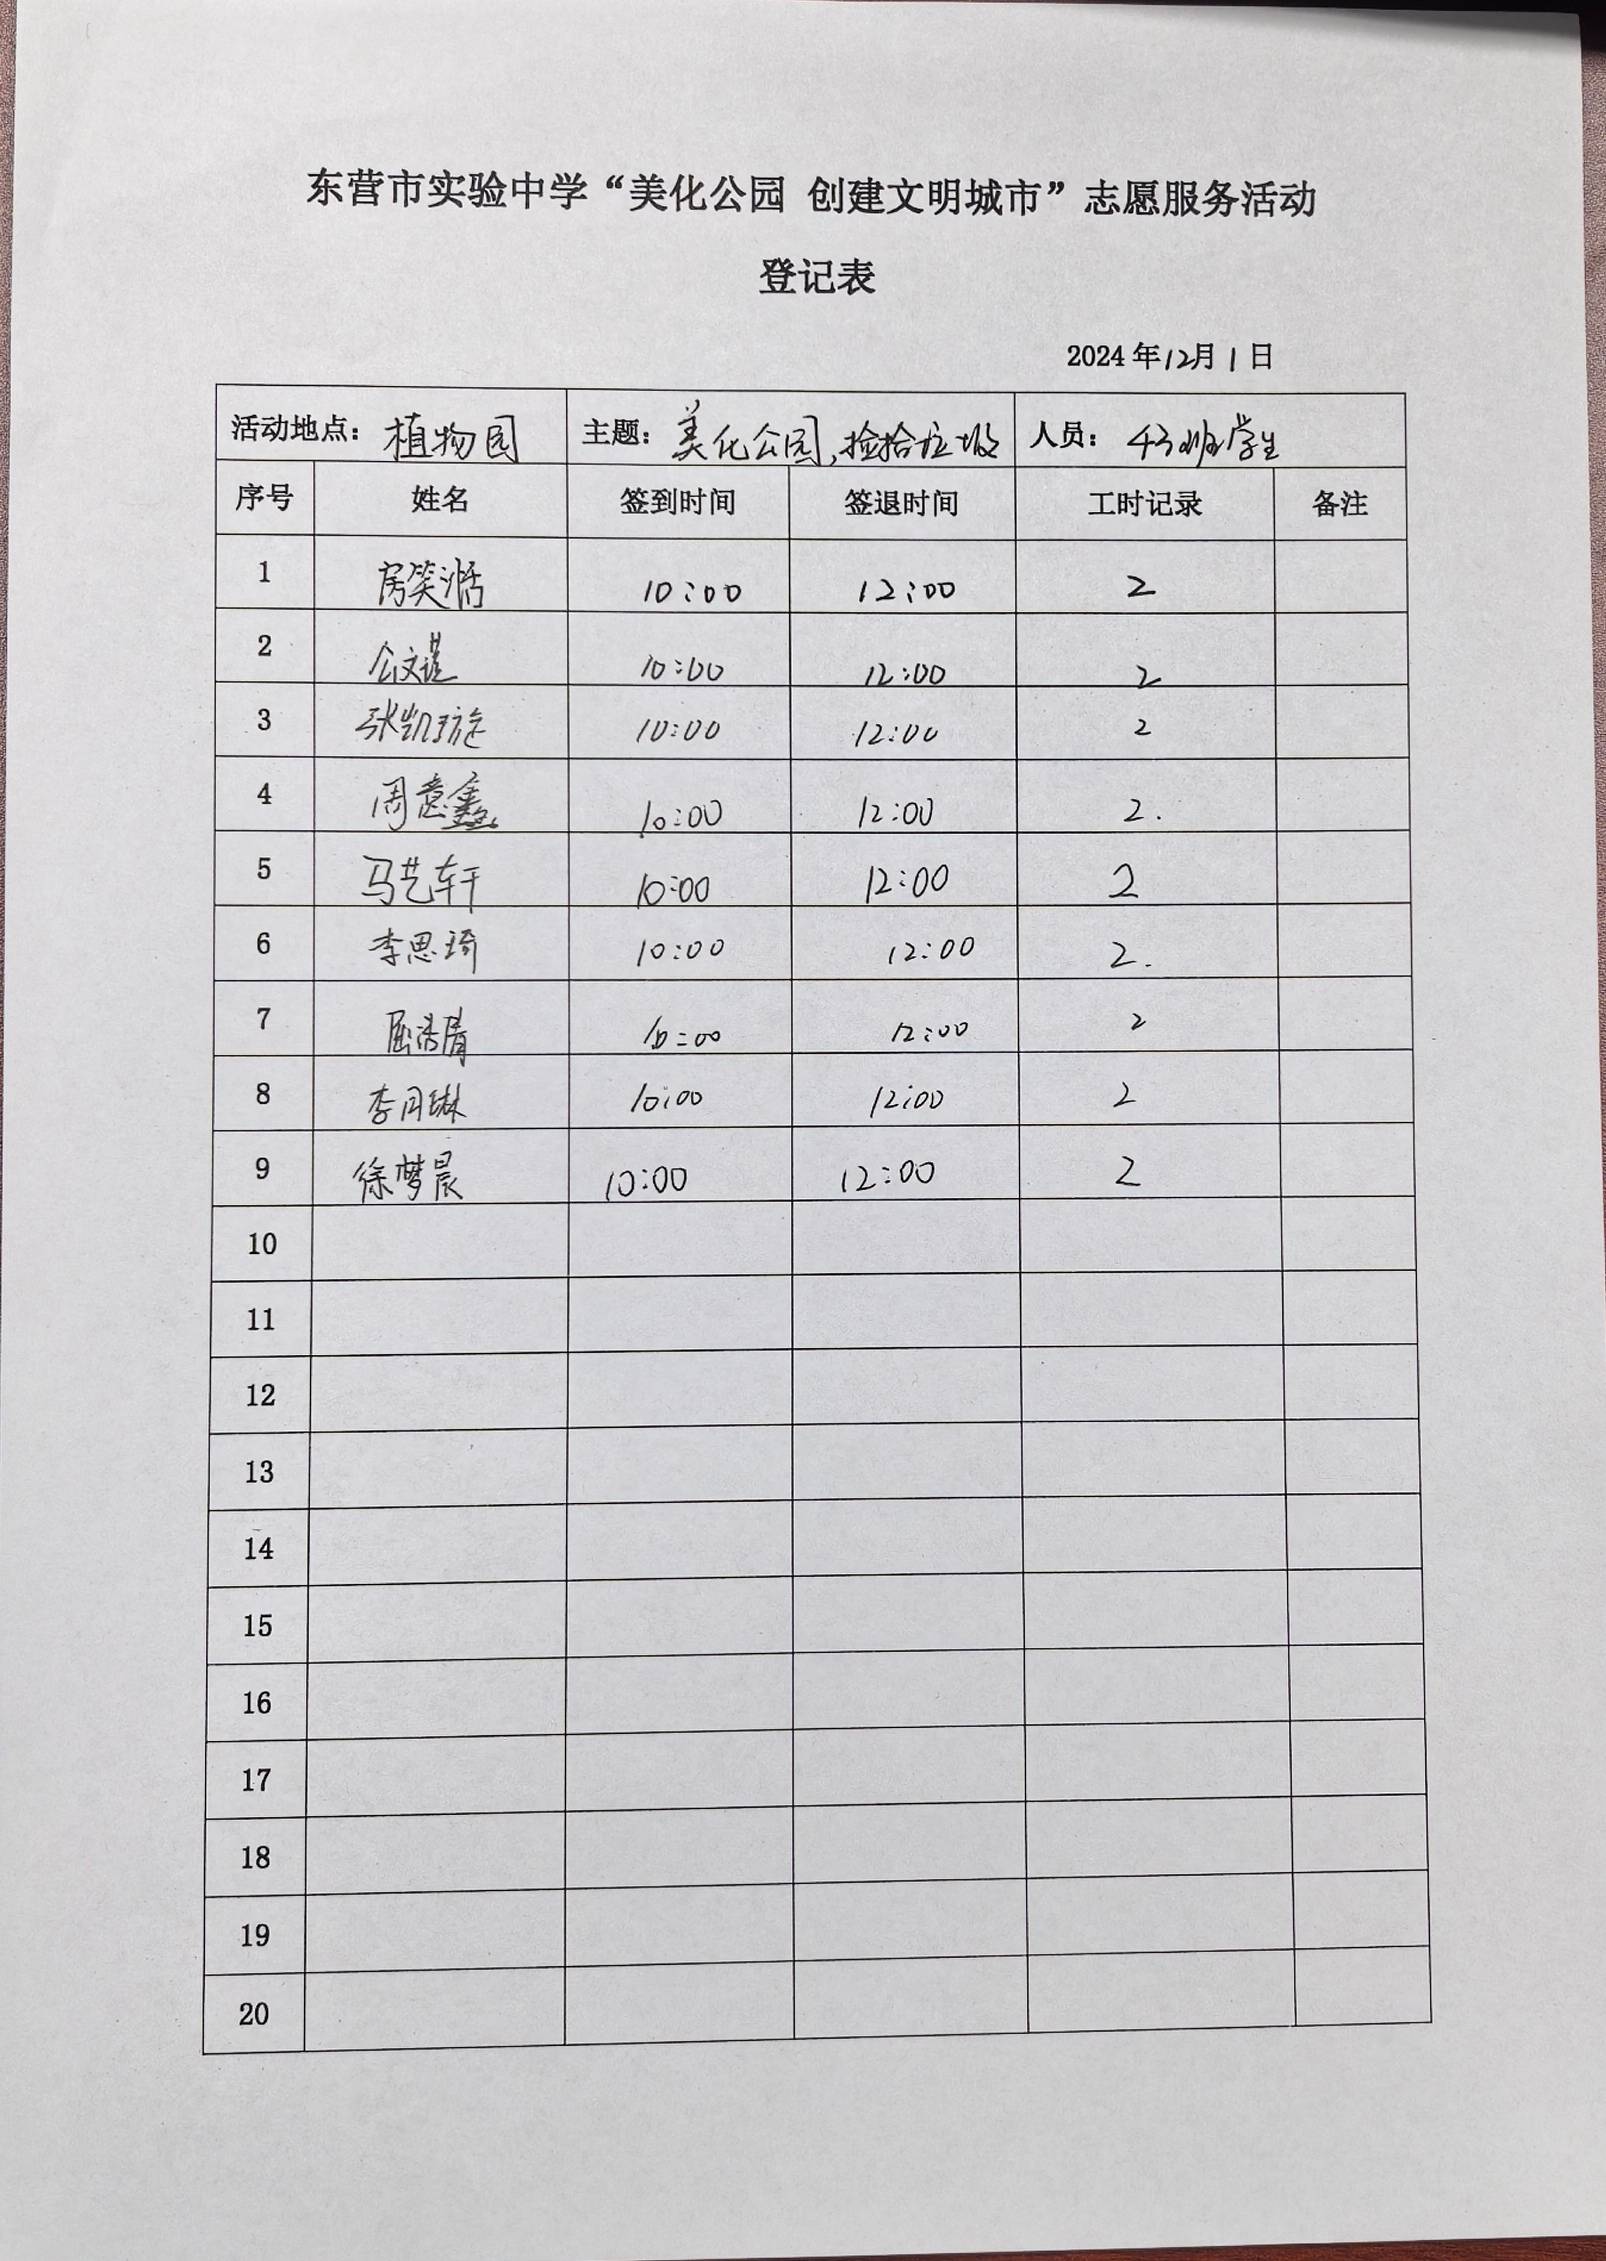 东营市实验中学“美化公园 创建文明城市”志愿服务活动
登记表
2024年12月1日
活动地点：植物园 主题：美化公园,捡拾垃圾 人员：43班学生
序号 姓名 签到时间 签退时间 工时记录 备注
1 房笑湉 10:00 12:00 2
2 公文谨 10:00 12:00 2
3 张凯旋 10:00 12:00 2
4 周意鑫 10:00 12:00 2.
5 马艺轩 10:00 12:00 2
6 李思琦 10:00 12:00 2.
7 10:00 12:00 2
8 李月琳 10:00 12:00 2
9 徐梦晨 10:00 12:00 2
10
11
12
13
14
15
16
17
18
19
20